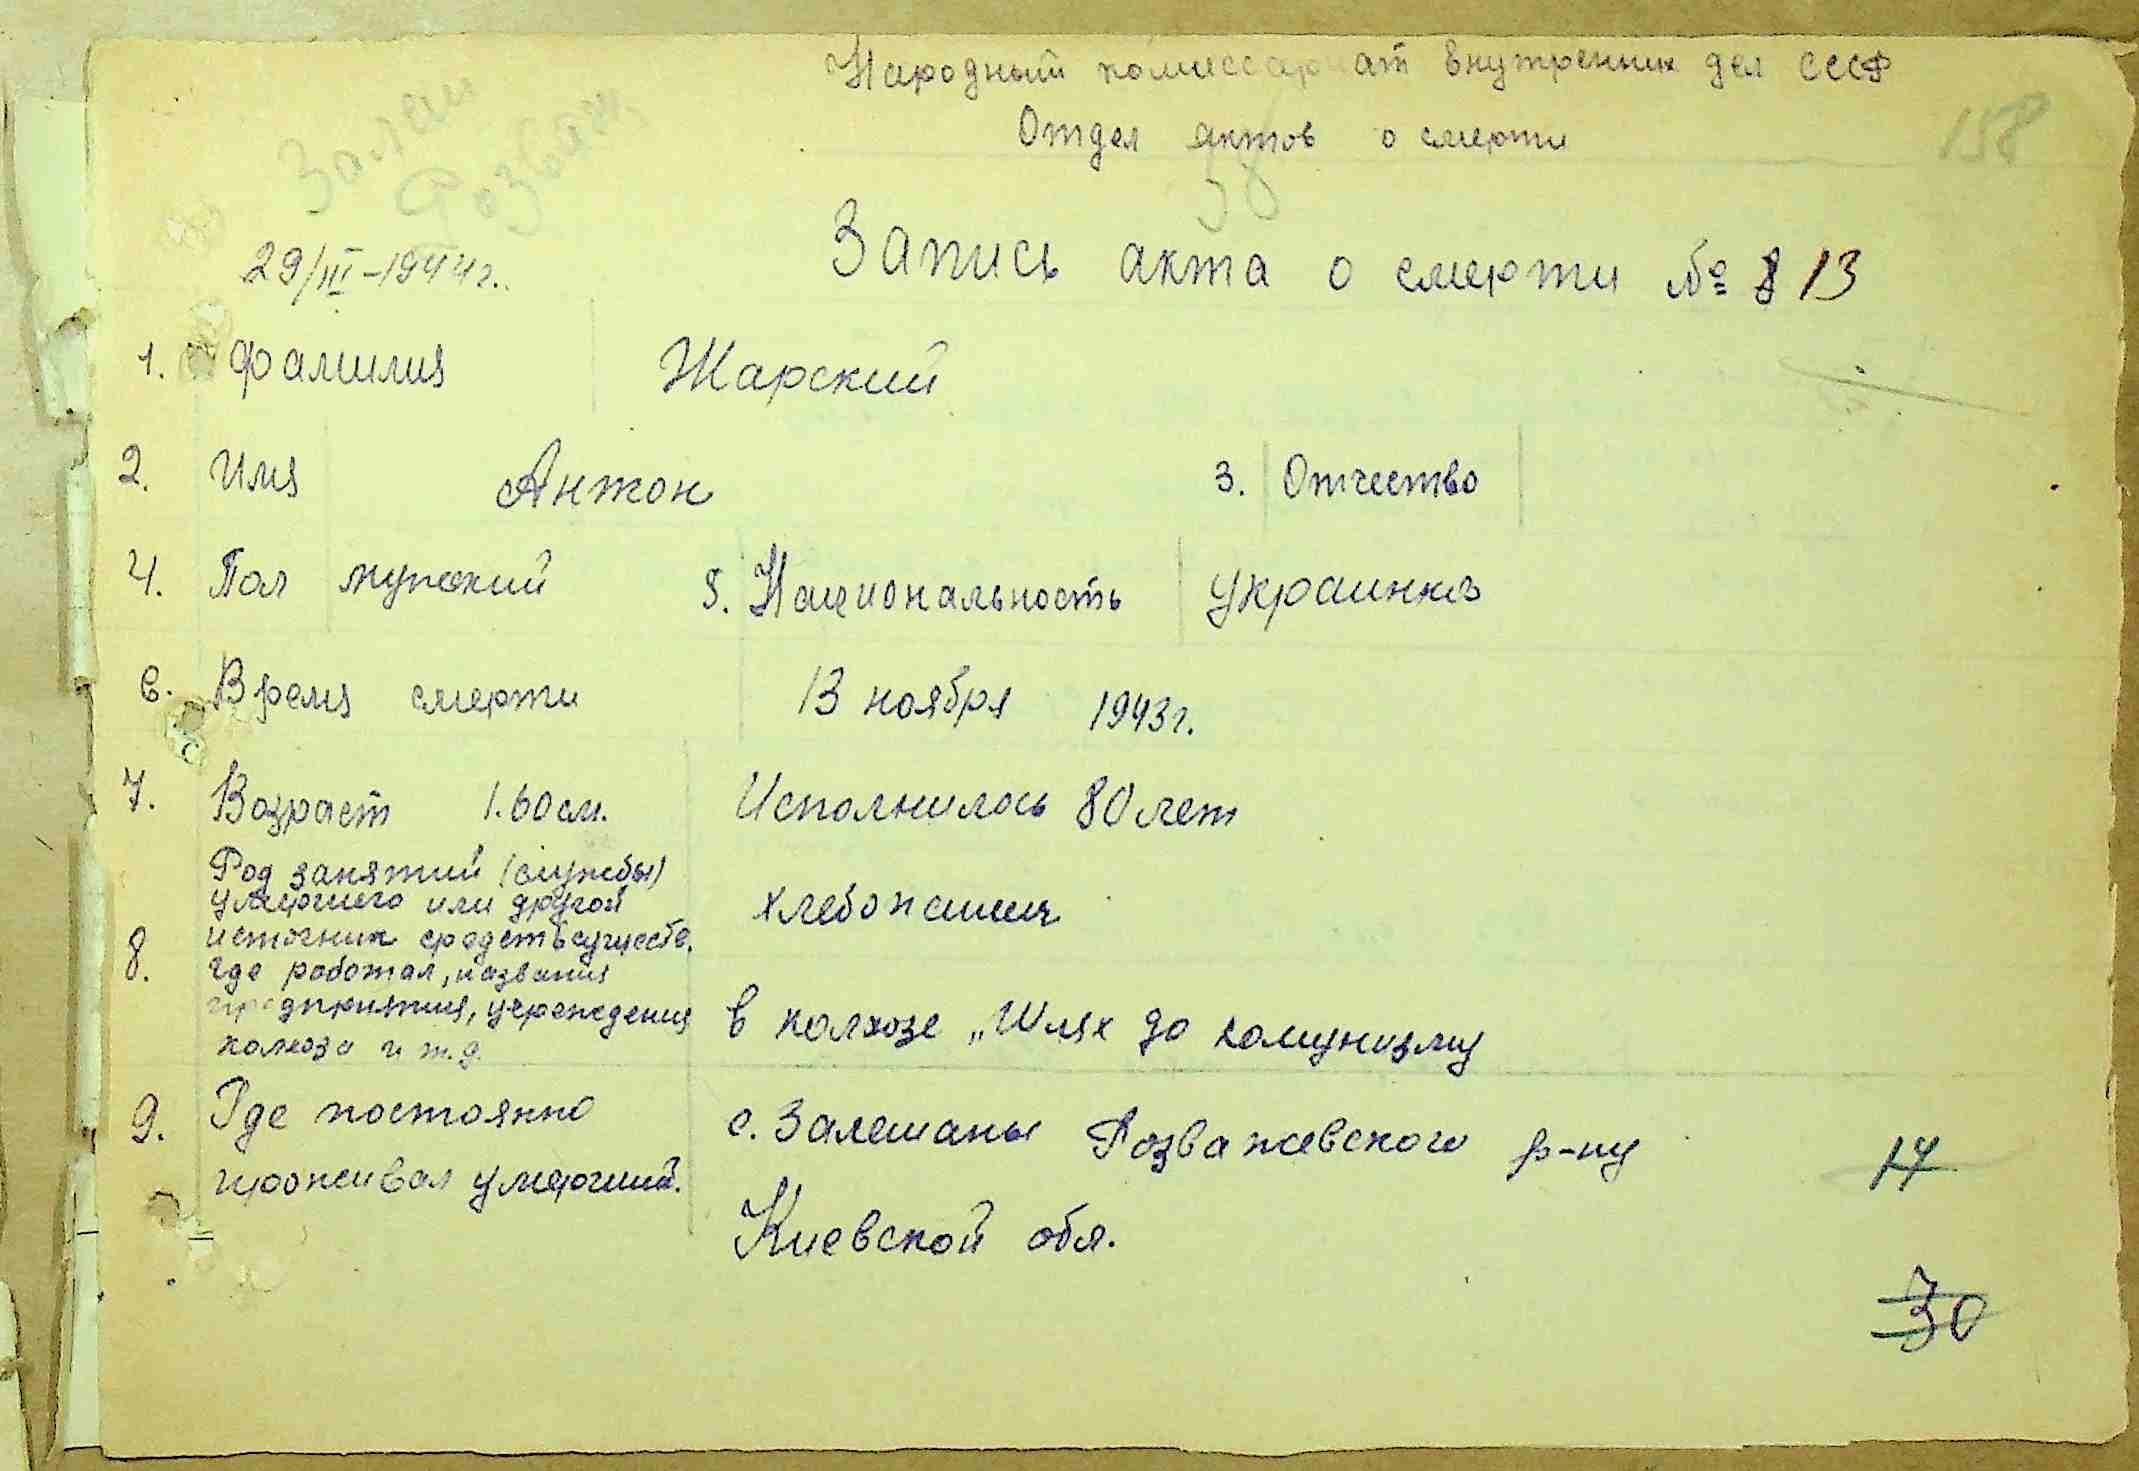 Народный комиссариат внутренних дел СССР
Отдел актов о смерти
158
Залеш
Розваж
38
29/III-1944г.
Запись акта о смерти № 13
1. Фамилия Жарский
2. Имя Антон 3. Отчество
4. Пол мужский 5. Национальность украинка
6. Время смерти 13 ноября 1943г.
7. Возраст 1.60см. Исполнилось 80 лет
Род занятий (службы)
умершего или другой хлебопашец
источник средств существ.
8. где работал, названия
предприятия, учреждения в колхозе „Шлях до комунизму
колхоза и т.д.
9. Где постоянно с. Залешаны Розважевского р-ну
проживал умерший. Киевской обл.
14
30